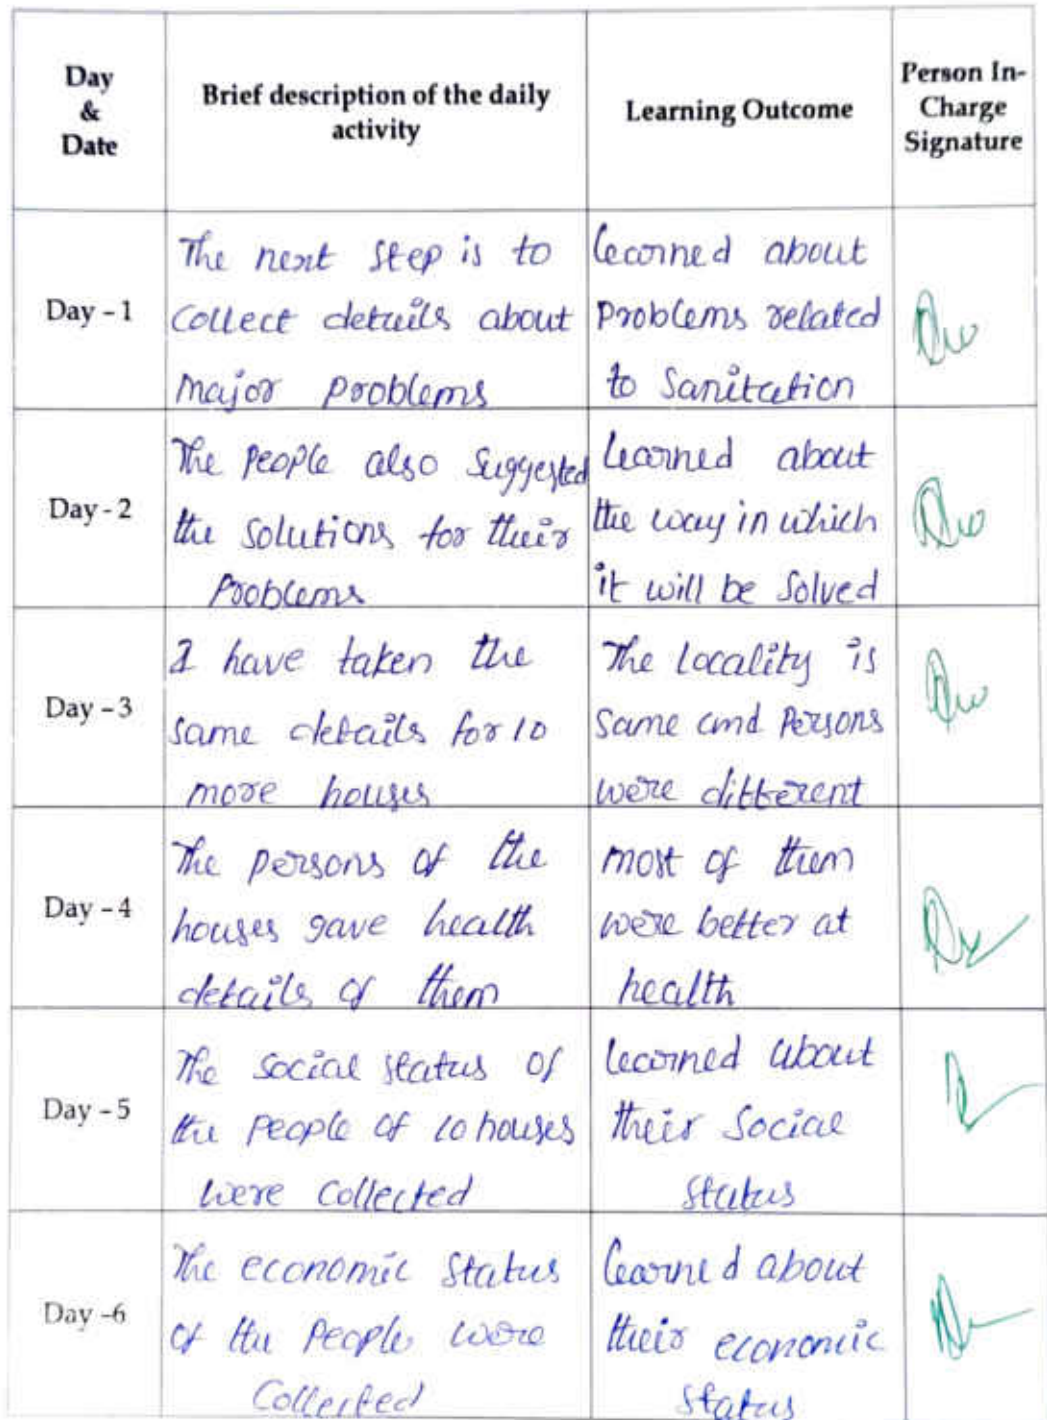 Day
&
Date
Brief description of the daily
activity
Learning Outcome
Person In-
Charge
Signature
Day - 1
The next step is to
collect details about
major problems
learned about
problems related
to sanitation
Day - 2
The people also suggested
the solutions for their
problems
learned about
the way in which
it will be solved
Day - 3
I have taken the
same details for 10
more houses
The locality is
same and persons
were different
Day - 4
The persons of the
houses gave health
details of them
most of them
were better at
health
Day - 5
The social status of
the people of 10 houses
were collected
learned about
their social
status
Day -6
The economic status
of the people were
collected
learned about
their economic
status